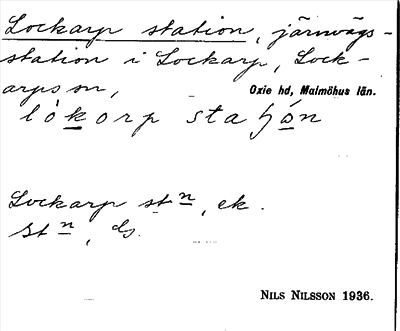 Lockarp station, järnvägs-
station i Lockarp, Lock-
arps sn, Oxie hd, Malmöhus län.
Lockarp stn, ek.
Stn, ds.
NILS NILSSON 1936.